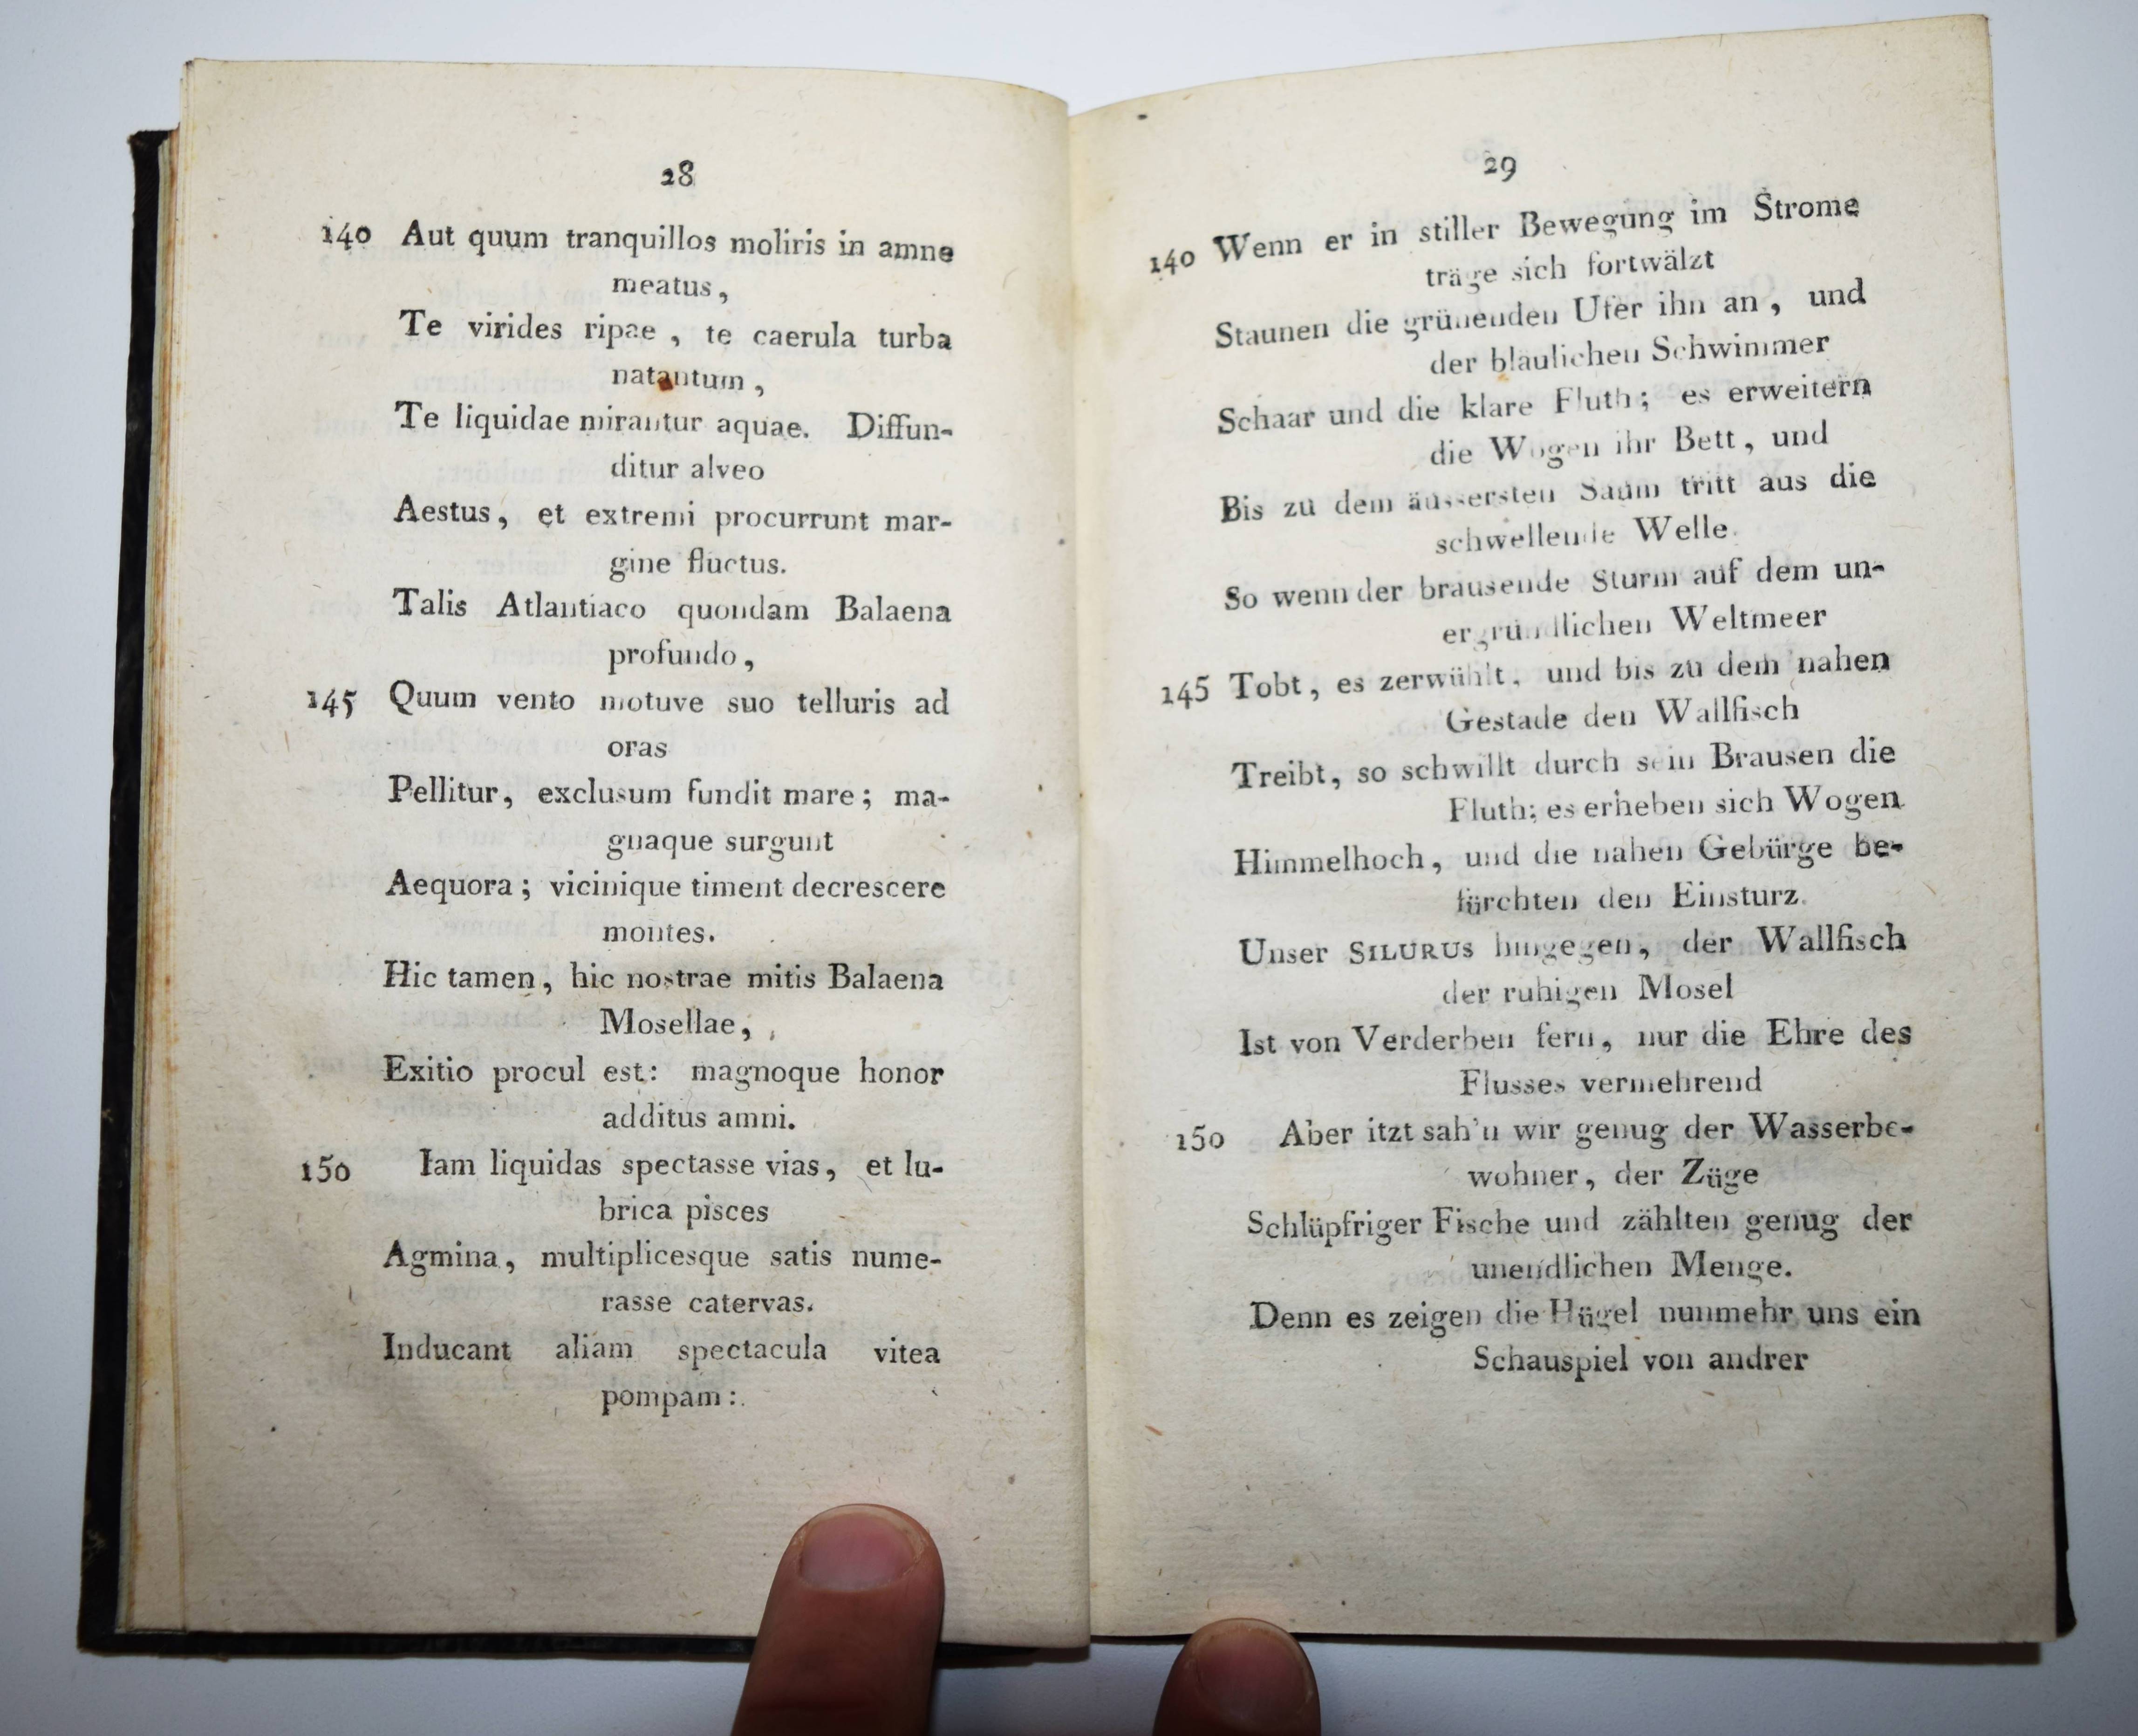 28
140 Aut quum tranquillos moliris in amne
meatus,
Te virides ripae, te caerula turba
natantum,
Te liquidae mirantur aquae. Diffun-
ditur alveo
Aestus, et extremi procurrunt mar-
gine fluctus.
Talis Atlantiaco quondam Balaena
profundo,
145 Quum vento motuve suo telluris ad
oras
Pellitur, exclusum fundit mare; ma-
gnaque surgunt
Aequora; vicinique timent decrescere
montes.
Hic tamen, hic nostrae mitis Balaena
Mosellae,
Exitio procul est: magnoque honor
additus amni.
150 Iam liquidas spectasse vias, et lu-
brica pisces
Agmina, multiplicesque satis nume-
rasse catervas.
Inducant aliam spectacula vitea
pompam:
29
140 Wenn er in stiller Bewegung im Strome
träge sich fortwälzt
Staunen die grünenden Ufer ihn an, und
der bläulichen Schwimmer
Schaar und die klare Fluth; es erweitern
die Wogen ihr Bett, und
Bis zu dem äussersten Saum tritt aus die
schwellende Welle.
So wenn der brausende Sturm auf dem un-
ergründlichen Weltmeer
145 Tobt, es zerwühlt, und bis zu dem nahen
Gestade den Wallfisch
Treibt, so schwillt durch sein Brausen die
Fluth; es erheben sich Wogen
Himmelhoch, und die nahen Gebürge be-
fürchten den Einsturz.
Unser SILURUS hingegen, der Wallfisch
der ruhigen Mosel
Ist von Verderben fern, nur die Ehre des
Flusses vermehrend
150 Aber itzt sah'n wir genug der Wasserbe-
wohner, der Züge
Schlüpfriger Fische und zählten genug der
unendlichen Menge.
Denn es zeigen die Hügel nunmehr uns ein
Schauspiel von andrer